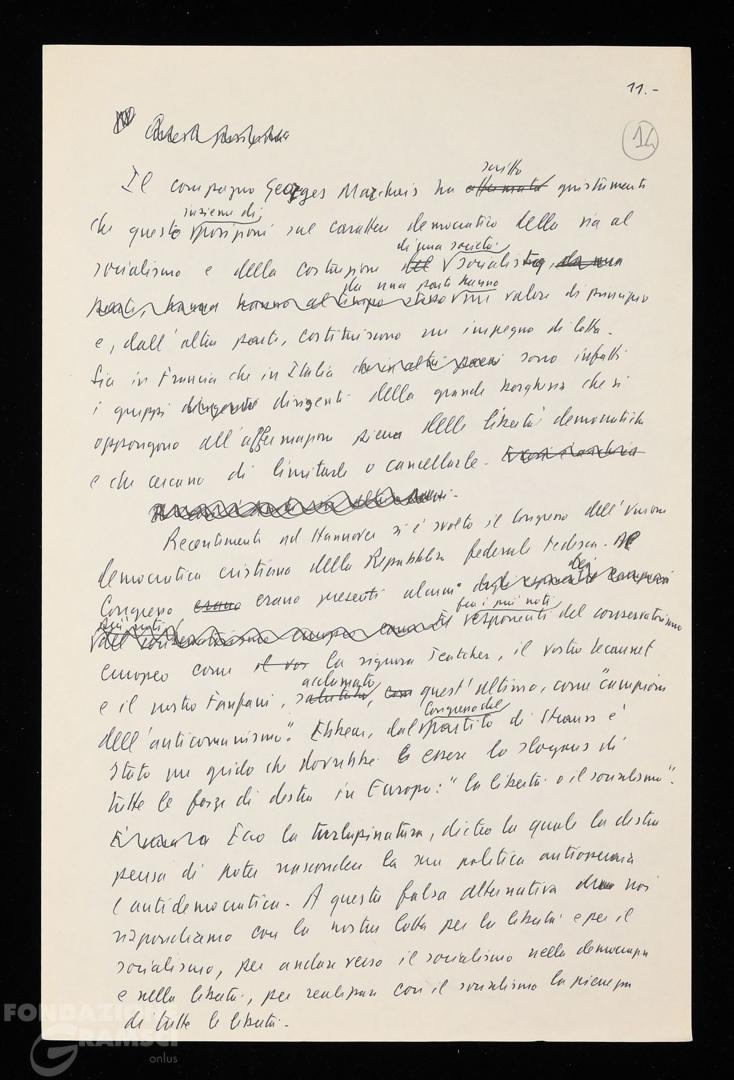 11.-
14
Il compagno Georges Marchais ha scritto giustamente
che questo insieme di posizioni sul carattere democratico della via al
socialismo e della costruzione di una società socialista,
da una parte hanno un valore di principio
e, dall'altra parte, costituiscono un impegno di lotta.
Sia in Francia che in Italia sono infatti
i gruppi dirigenti della grande borghesia che si
oppongono all'affermazione piena delle libertà democratiche
e che cercano di limitarle o cancellarle.
Recentemente ad Hannover si è svolto il Congresso dell'Unione
democratica cristiana della Repubblica federale tedesca. Al
Congresso erano presenti alcuni dei
fra i più noti esponenti del conservatorismo
europeo come la signora Teatcher, il vostro Lecanuet
e il nostro Fanfani, acclamato, quest'ultimo, come "campione
dell'anticomunismo". Ebbene, dal Congresso del partito di Strauss è
stato un grido che dovrebbe essere lo slogans di
tutte le forze di destra in Europa: "la libertà o il socialismo".
Ecco la turlupinatura, dietro la quale la destra
pensa di poter nascondere la sua politica antioperaia
e antidemocratica. A questa falsa alternativa noi
rispondiamo con la nostra lotta per la libertà e per il
socialismo, per andare verso il socialismo nella democrazia
e nella libertà, per realizzare con il socialismo la pienezza
di tutte le libertà.
FONDAZIONE
GRAMSCI
onlus